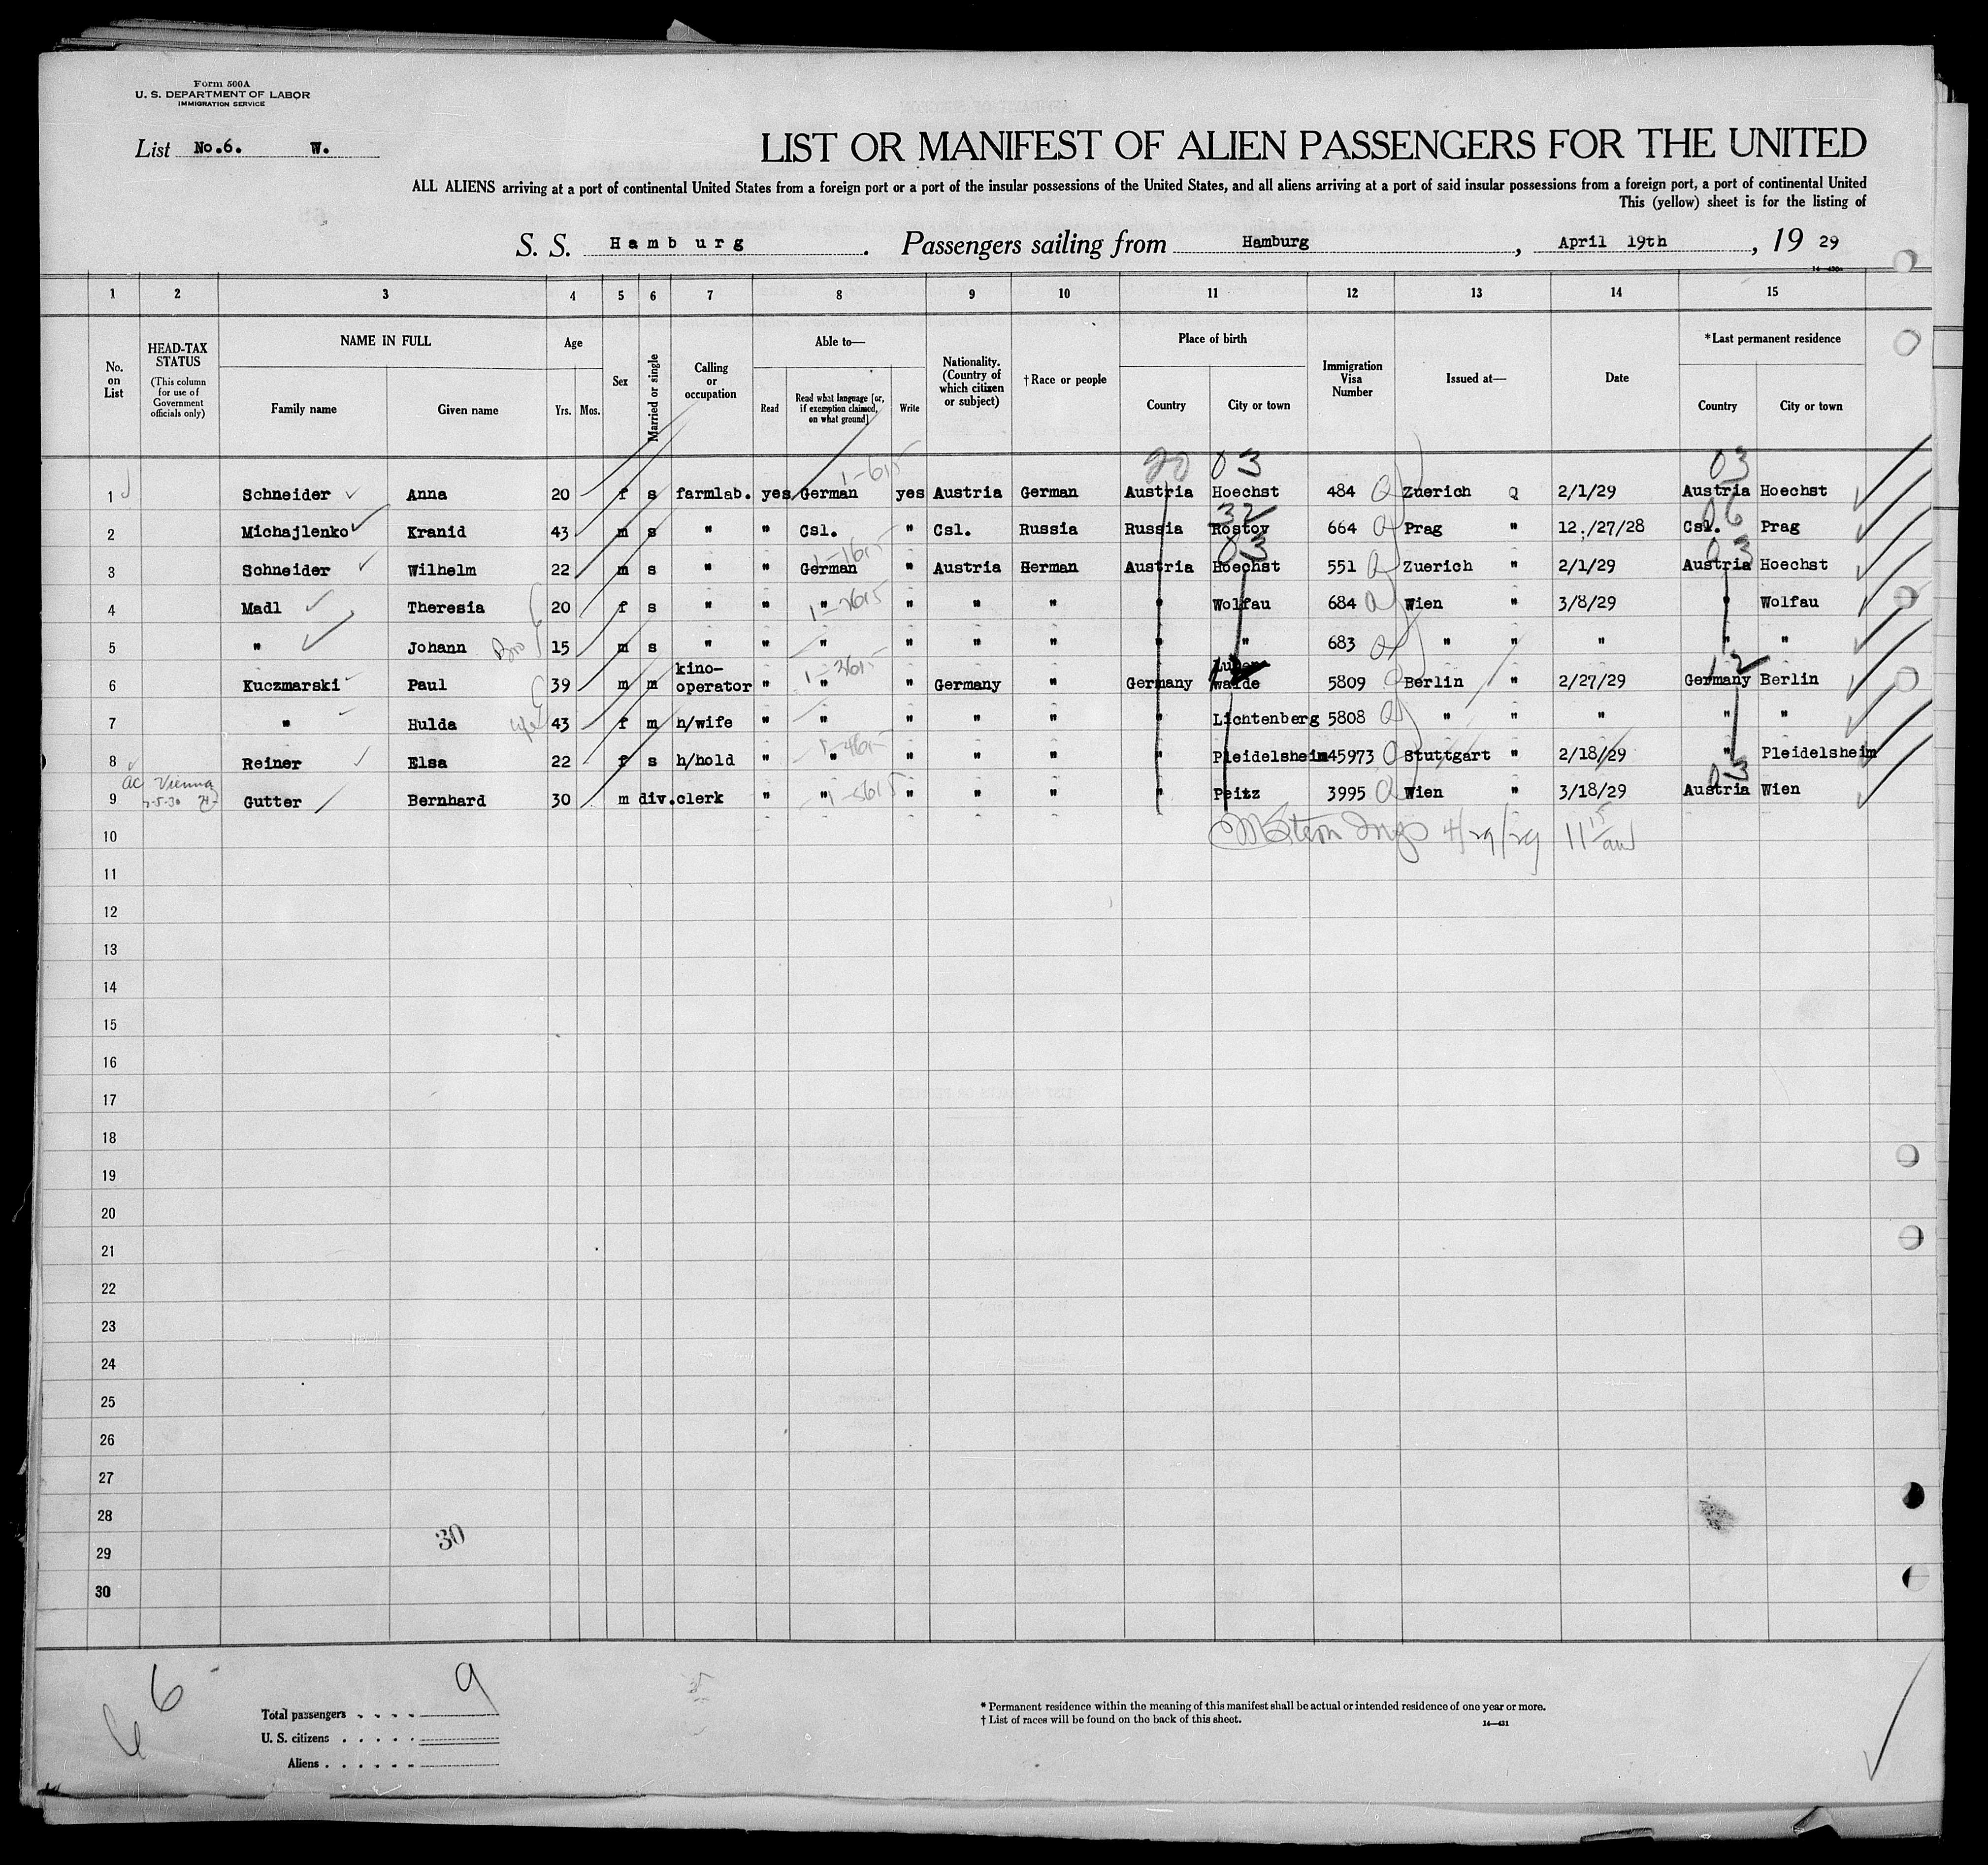 Form 500A
U. S. DEPARTMENT OF LABOR
IMMIGRATION SERVICE
List No.6. W.
LIST OR MANIFEST OF ALIEN PASSENGERS FOR THE UNITED
ALL ALIENS arriving at a port of continental United States from a foreign port or a port of the insular possessions of the United States, and all aliens arriving at a port of said insular possessions from a foreign port, a port of continental United
This (yellow) sheet is for the listing of
S. S. Hamburg. Passengers sailing from Hamburg, April 19th, 19 29
1 2 3 4 5 6 7 8 9 10 11 12 13 14 15
No. on List
HEAD-TAX STATUS
(This column for use of Government officials only)
NAME IN FULL
Family name Given name
Age
Yrs. Mos.
Sex
Married or single
Calling or occupation
Able to—
Read Read what language [or, if exemption claimed, on what ground] Write
Nationality. (Country of which citizen or subject)
†Race or people
Place of birth
Country City or town
Immigration Visa Number
Issued at—
Date
*Last permanent residence
Country City or town
20 03 03
1-615
1 Schneider Anna 20 f s farmlab. yes German yes Austria German Austria Hoechst 484 Q Zuerich Q 2/1/29 Austria Hoechst
32 06
2 Michajlenko Kranid 43 m s " " Csl. " Csl. Russia Russia Rostov 664 Q Prag " 12./27/28 Csl. Prag
1-1615 03 03
3 Schneider Wilhelm 22 m s " " German " Austria Herman Austria Hoechst 551 Q Zuerich " 2/1/29 Austria Hoechst
4 Madl Theresia 20 f s " " " 1-2615 " " " " Wolfau 684 Q Wien " 3/8/29 " Wolfau
5 " Johann Bro 15 m s " " " " " " " " 683 Q " " " " "
1-3615 12 12
6 Kuczmarski Paul 39 m m kino-operator " " " Germany " Germany walde 5809 Q Berlin " 2/27/29 Germany Berlin
7 " Hulda wife 43 f m h/wife " " " " " " Lichtenberg 5808 Q " " " " "
1-4615
8 Reiner Elsa 22 f s h/hold " " " " " " Pleidelsheim 45973 Q Stuttgart " 2/18/29 " Pleidelsheim
ac Vienna 03
9 Gutter Bernhard 30 m div. clerk " " 1-5615 " " " " Peitz 3995 Q Wien " 3/18/29 Austria Wien
10 4/29/29 11 15 am
11
12
13
14
15
16
17
18
19
20
21
22
23
24
25
26
27
28
30
29
30
6 6
9
Total passengers
U. S. citizens
Aliens
* Permanent residence within the meaning of this manifest shall be actual or intended residence of one year or more.
† List of races will be found on the back of this sheet.
14—431